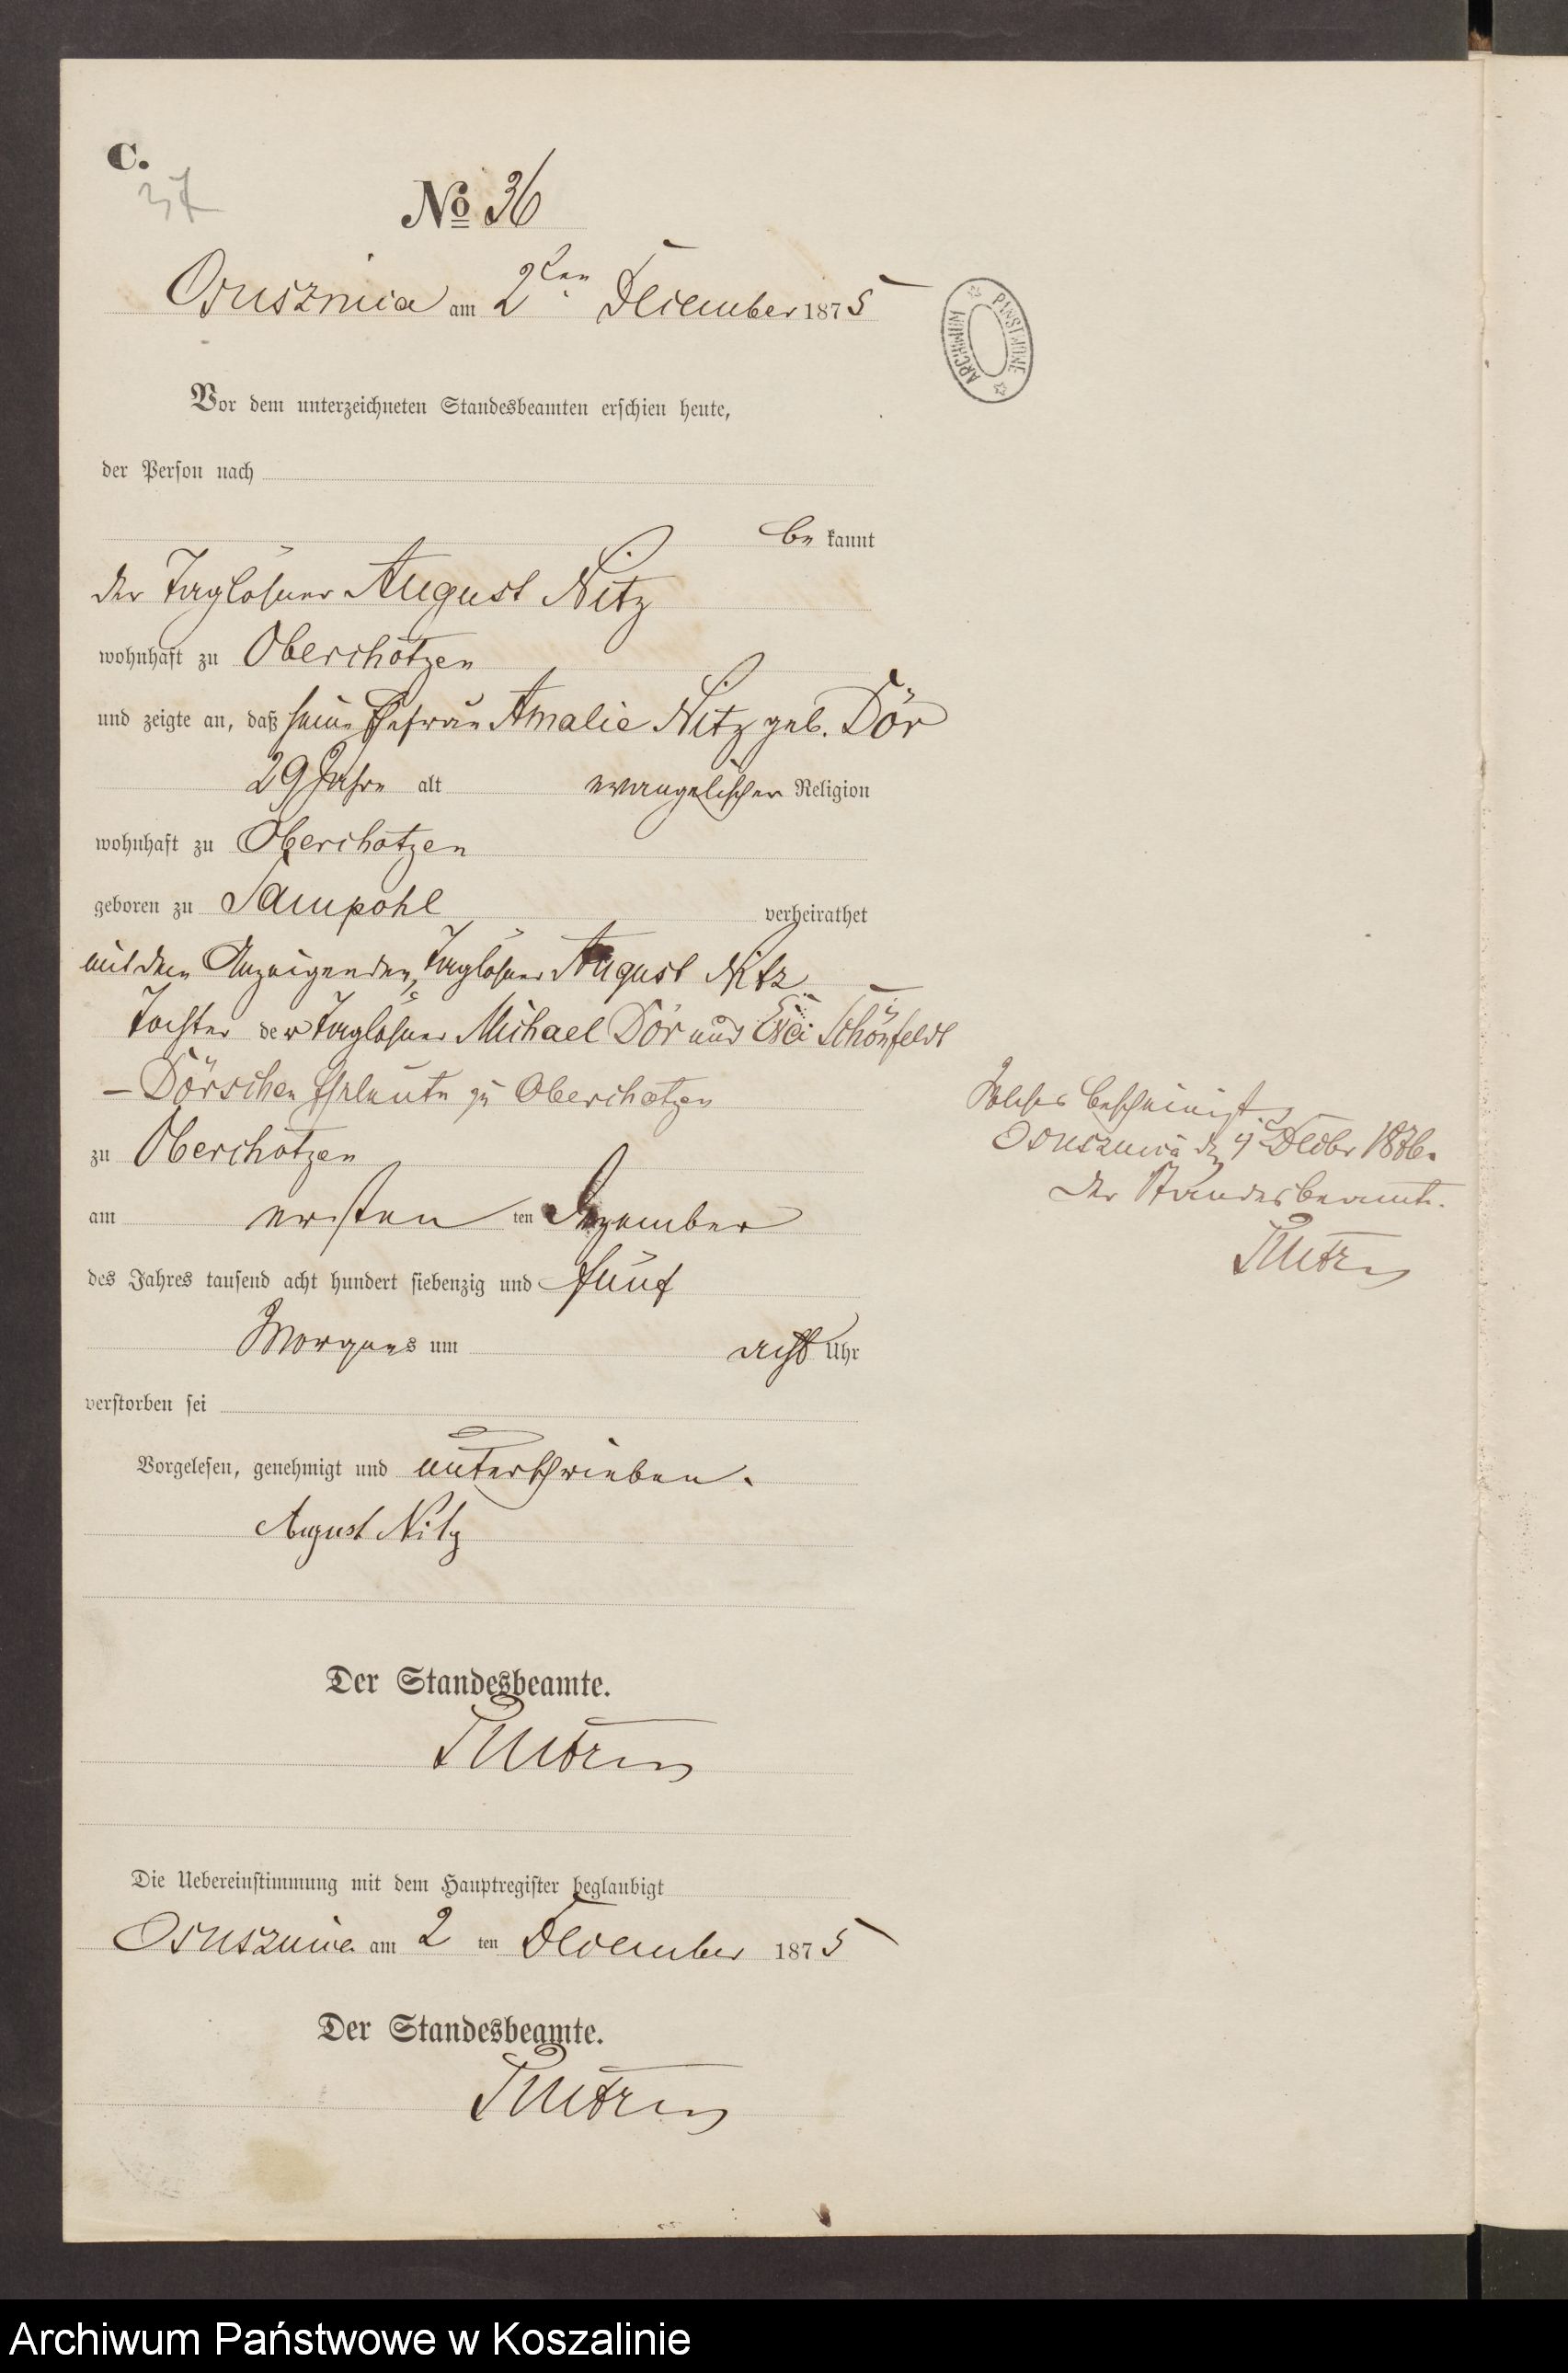 C.
37
No 36
Osusznica am 2ten December 1875
ARCHIWUM PAŃSTWOWE
Vor dem unterzeichneten Standesbeamten erschien heute,
der Person nach
be kannt
der Taglöhner August Nitz
wohnhaft zu Oberchotzen
und zeigte an, daß seine Ehefrau Amalie Nitz geb. Dör
29 Jahre alt evangelischer Religion
wohnhaft zu Oberchotzen
geboren zu Sampohl verheirathet
mit dem Anzeigenden, Taglöhner August Nitz
Tochter der Taglöhner Michael Dör und Schönfeldt
– Dörschen Eheleute zu Oberchotzen
zu Oberchotzen
am ersten ten Dezember
des Jahres tausend acht hundert siebenzig und fünf
Morgens um acht Uhr
verstorben sei
Vorgelesen, genehmigt und unterschrieben.
August Nitz
Der Standesbeamte.
Die Uebereinstimmung mit dem Hauptregister beglaubigt
Osusznica am 2 ten December 1875
Der Standesbeamte.
bescheinigt
Osusznica den 4 Decbr 1876.
Der Standesbeamte.
Archiwum Państwowe w Koszalinie